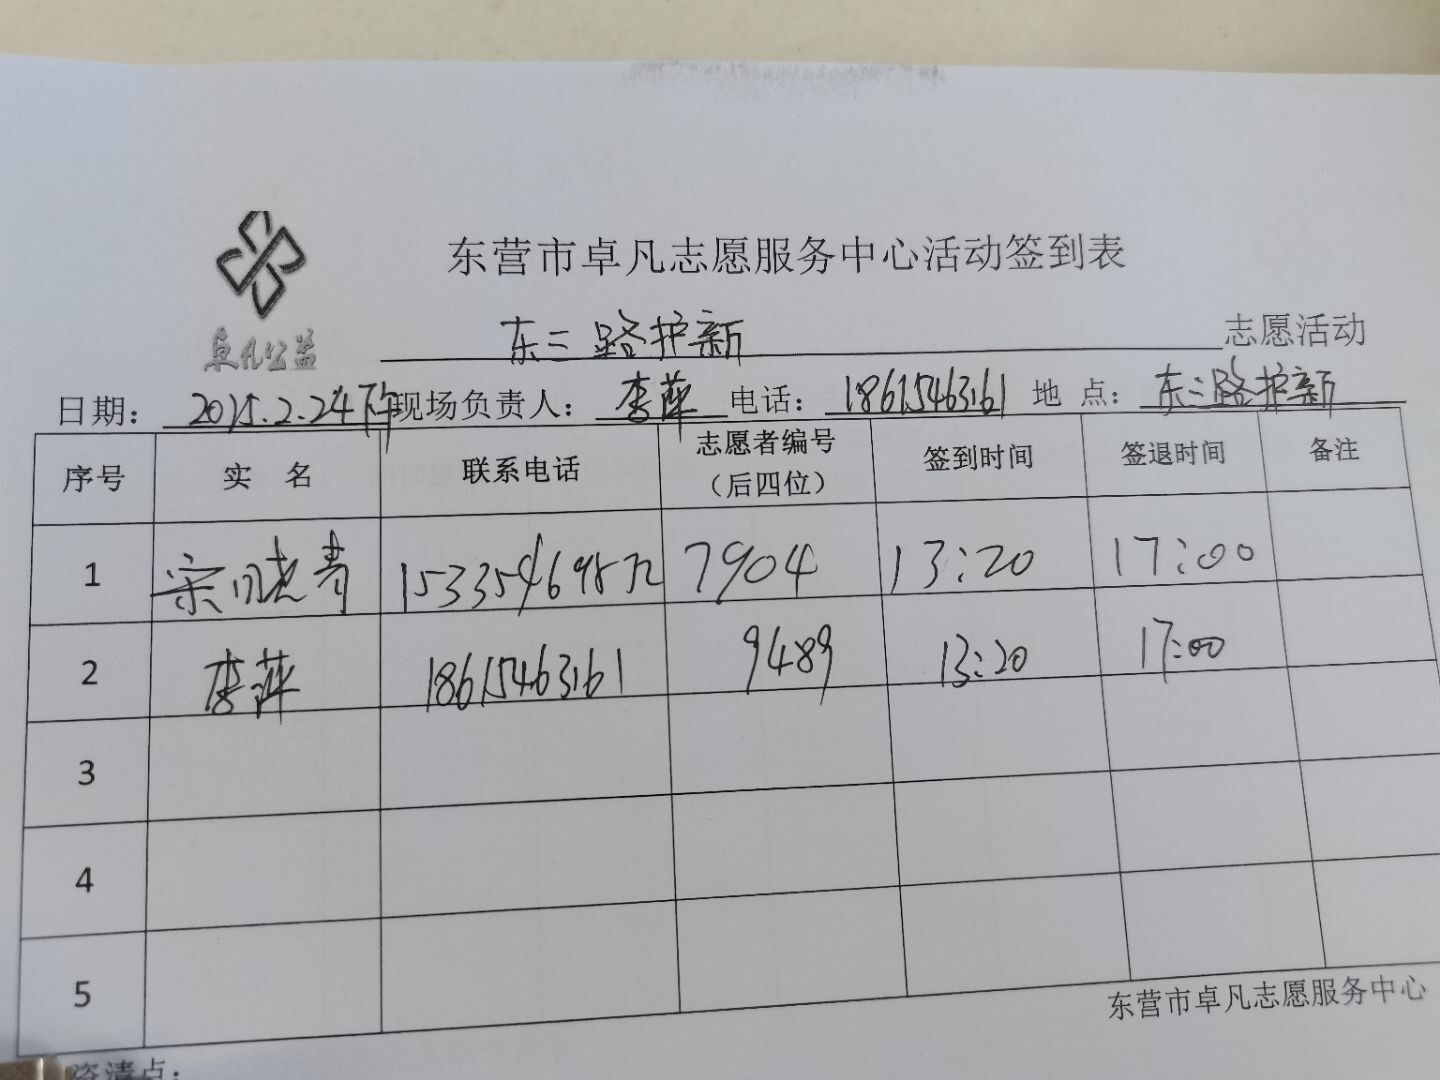 东营市卓凡志愿服务中心活动签到表
卓凡公益
东三路护新 志愿活动
日期： 2025.2.24下午 现场负责人： 李萍 电话： 18615463161 地 点： 东三路护新
序号 实 名 联系电话 志愿者编号（后四位） 签到时间 签退时间 备注
1 宋晓青 7904 13:20 17:00
2 李萍 18615463161 9489 13:20 17:00
3
4
5
东营市卓凡志愿服务中心
资清点：